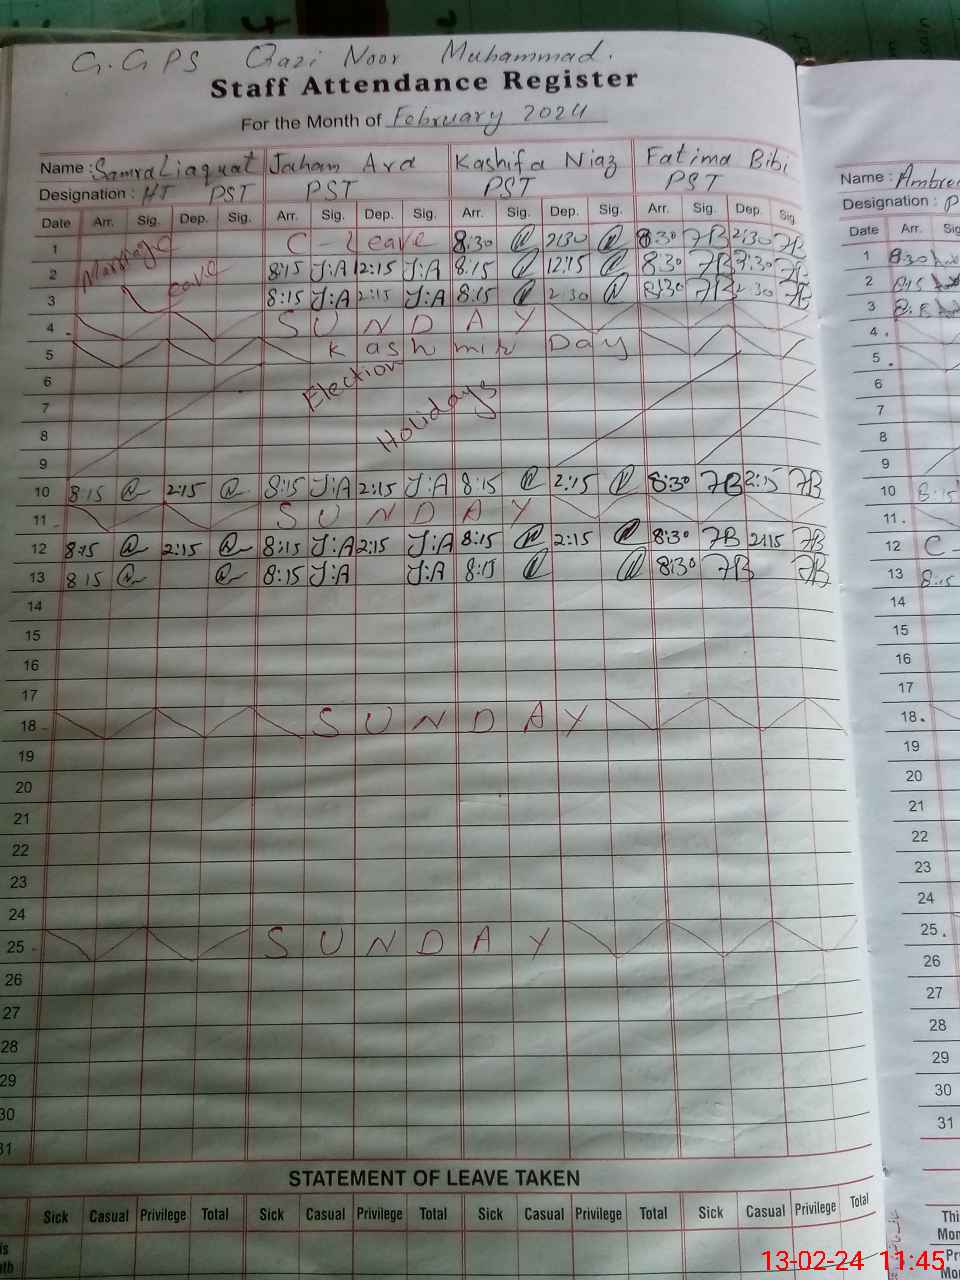 G.GPS Qazi Noor Muhammad.
Staff Attendance Register
For the Month of February 2024
Name : Samra Liaquat Jahan Ara Kashifa Niaz Fatima Bibi
Designation : HT PST PST PST PST
Date Arr. Sig. Dep. Sig. Arr. Sig. Dep. Sig. Arr. Sig. Dep. Sig. Arr. Sig. Dep. Sig.
1 Marriage C-Leave 8:30 2:30 8:30 FB 2:30 FB
2 Leave 8:15 J:A 12:15 J:A 8:15 12:15 8:30 FB FB
3 8:15 J:A 2:15 J:A 8:15 2:30 8:30 FB 2:30 FB
4 SUNDAY
5 Kashmir Day
6 Election
7 Holidays
8
9
10 8:15 2:15 8:15 J:A 2:15 J:A 8:15 2:15 8:30 FB 2:15 FB
11 SUNDAY
12 8:15 2:15 8:15 J:A 2:15 J:A 8:15 2:15 8:30 FB 2:15 FB
13 8:15 8:15 J:A J:A 8:15 8:30 FB FB
14
15
16
17
18 SUNDAY
19
20
21
22
23
24
25 SUNDAY
26
27
28
29
30
31
STATEMENT OF LEAVE TAKEN
Sick Casual Privilege Total Sick Casual Privilege Total Sick Casual Privilege Total Sick Casual Privilege Total
Name :
Designation : P
Date Arr.
1 8:30
2 8:15
3
4.
5.
6
7
8
9
10 8:15
11.
12 C-
13 8:15
14
15
16
17
18.
19
20
21
22
23
24
25.
26
27
28
29
30
31
13-02-24 11:45